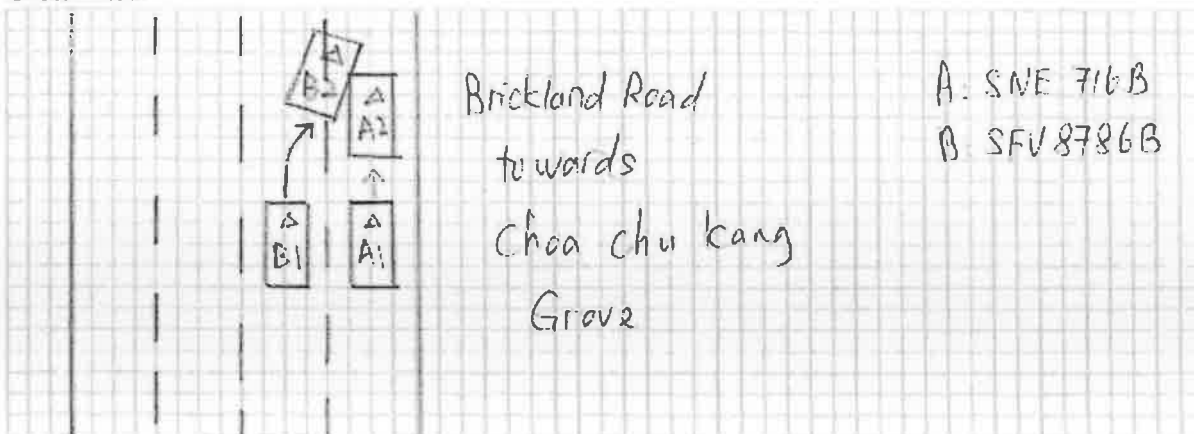 B2
A2
B1
A1
Brickland Road
towards
Choa chu kang
Grove
A: SNE 716B
B: SFV 8786B